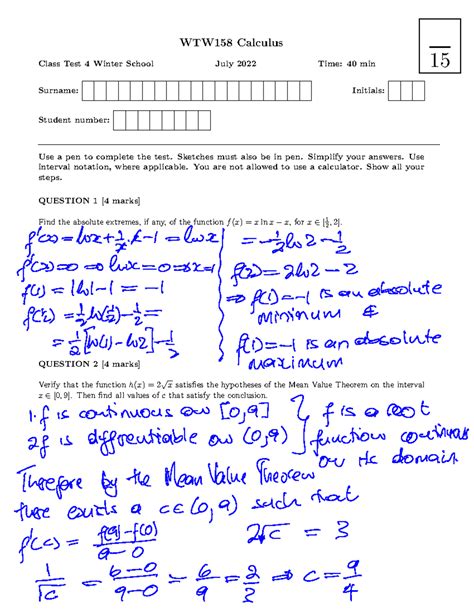 WTW158 Calculus
15
Class Test 4 Winter School July 2022 Time: 40 min
Surname: Initials:
Student number:
Use a pen to complete the test. Sketches must also be in pen. Simplify your answers. Use
interval notation, where applicable. You are not allowed to use a calculator. Show all your
steps.
QUESTION 1 [4 marks]
Find the absolute extremes, if any, of the function f(x) = x ln x − x, for x ∈ [½, 2].
f'(x) = lnx + 1/x · x − 1 = lnx
f'(x) = 0 ⇒ lnx = 0 ⇒ x = 1
f(1) = 1ln1 − 1 = −1
f(½) = ½ln(½) − ½ =
= ½[ln1 − ln2] − ½
= −½ln2 − ½
f(2) = 2ln2 − 2
⇒ f(1) = −1 is an absolute
minimum &
f(1) = −1 is an absolute
maximum
QUESTION 2 [4 marks]
Verify that the function h(x) = 2√x satisfies the hypotheses of the Mean Value Theorem on the interval
x ∈ [0, 9]. Then find all values of c that satisfy the conclusion.
1. f is continuous on [0,9]
2 f is differentiable on (0,9)
f is a root
function continuous
on its domain
Therefore by the Mean Value Theorem
there exists a c ∈ (0,9) such that
f'(c) = f(9) − f(0) / 9 − 0
1/√c = 6 − 0 / 9 − 0 = 6/9 = 2/3
2√c = 3
⇒ c = 9/4